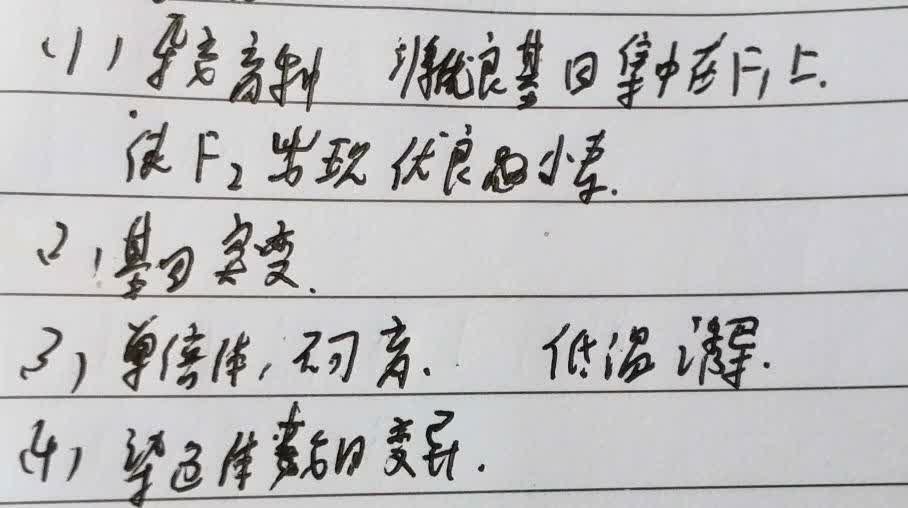 (1) 杂交育种 将优良基因集中在F₁上.
使F₂出现优良的小麦.
(2) 基因突变.
(3) 单倍体, 不可育. 低温 处理.
(4) 染色体数目变异.